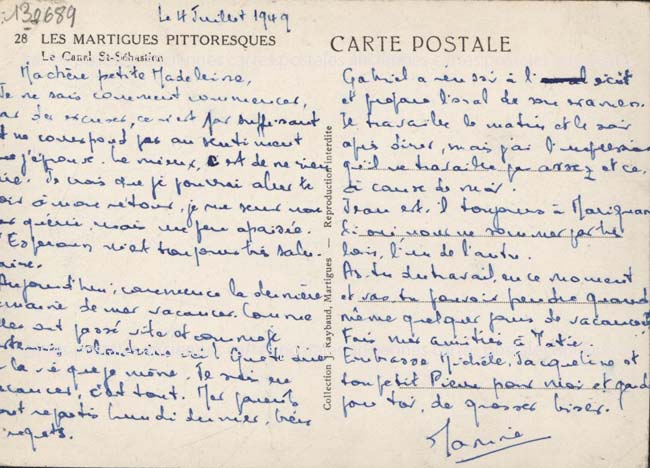 132689
Le 4 Juillet 1949
28 LES MARTIGUES PITTORESQUES
Le Canal St-Sébastien
CARTE POSTALE
Ma chère petite Madeleine,
Je ne sais comment commencer,
par des excuses, ce n'est pas suffisant
et ne correspond pas au sentiment
que j'éprouve. Le mieux, c'est de ne rien
dire. Je crois que je pourrai aller te
voir à mon retour, je me sens non
pas guérie, mais un peu apaisée.
L'Esperou m'est toujours très salu-
taire.
Aujourd'hui, commence la dernière
semaine de mes vacances. Comme
elles ont passé vite et comme je
volontiers ici ! Que te dire
de la vie que je mène. Je suis en
vacances, c'est tout. Mes parents
sont repartis lundi dernier, très
regrets.
Collection J. Raybaud, Martigues — Reproduction Interdite
Gabriel a réussi à l'écrit
et prépare l'oral de son examen.
Je travaille le matin et le soir
après dîner, mais j'ai l'impression
qu'il ne travaille pas assez et ce,
à cause de moi.
Jean est-il toujours à Marignane
Si oui nous ne sommes pas très
loin, l'un de l'autre.
As-tu du travail, en ce moment
et vas-tu pouvoir prendre quand
même quelques jours de vacances
Fais mes amitiés à Tatie.
Embrasse Michèle, Jacqueline et
ton petit Pierre pour moi et garde
pour toi, de grosses bises.